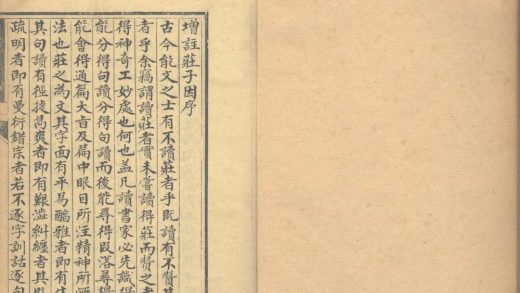 增註莊子因序
古今能文之士有不讀莊者乎既讀有不贊其
者乎余竊謂讀莊者實未嘗讀得莊而贊之者
得神奇工妙處也何也蓋凡讀書家必先識得
能分得句讀分得句讀而後能尋得段落尋得
能會得通篇大旨及篇中眼目所注精神所
法也莊之為文其字面有平易醞雅者即有生
其句讀有徑捷雋爽者即有艱澀糾纏者其
疏明者即有曼衍錯宗者若不逐字訓詁逐句